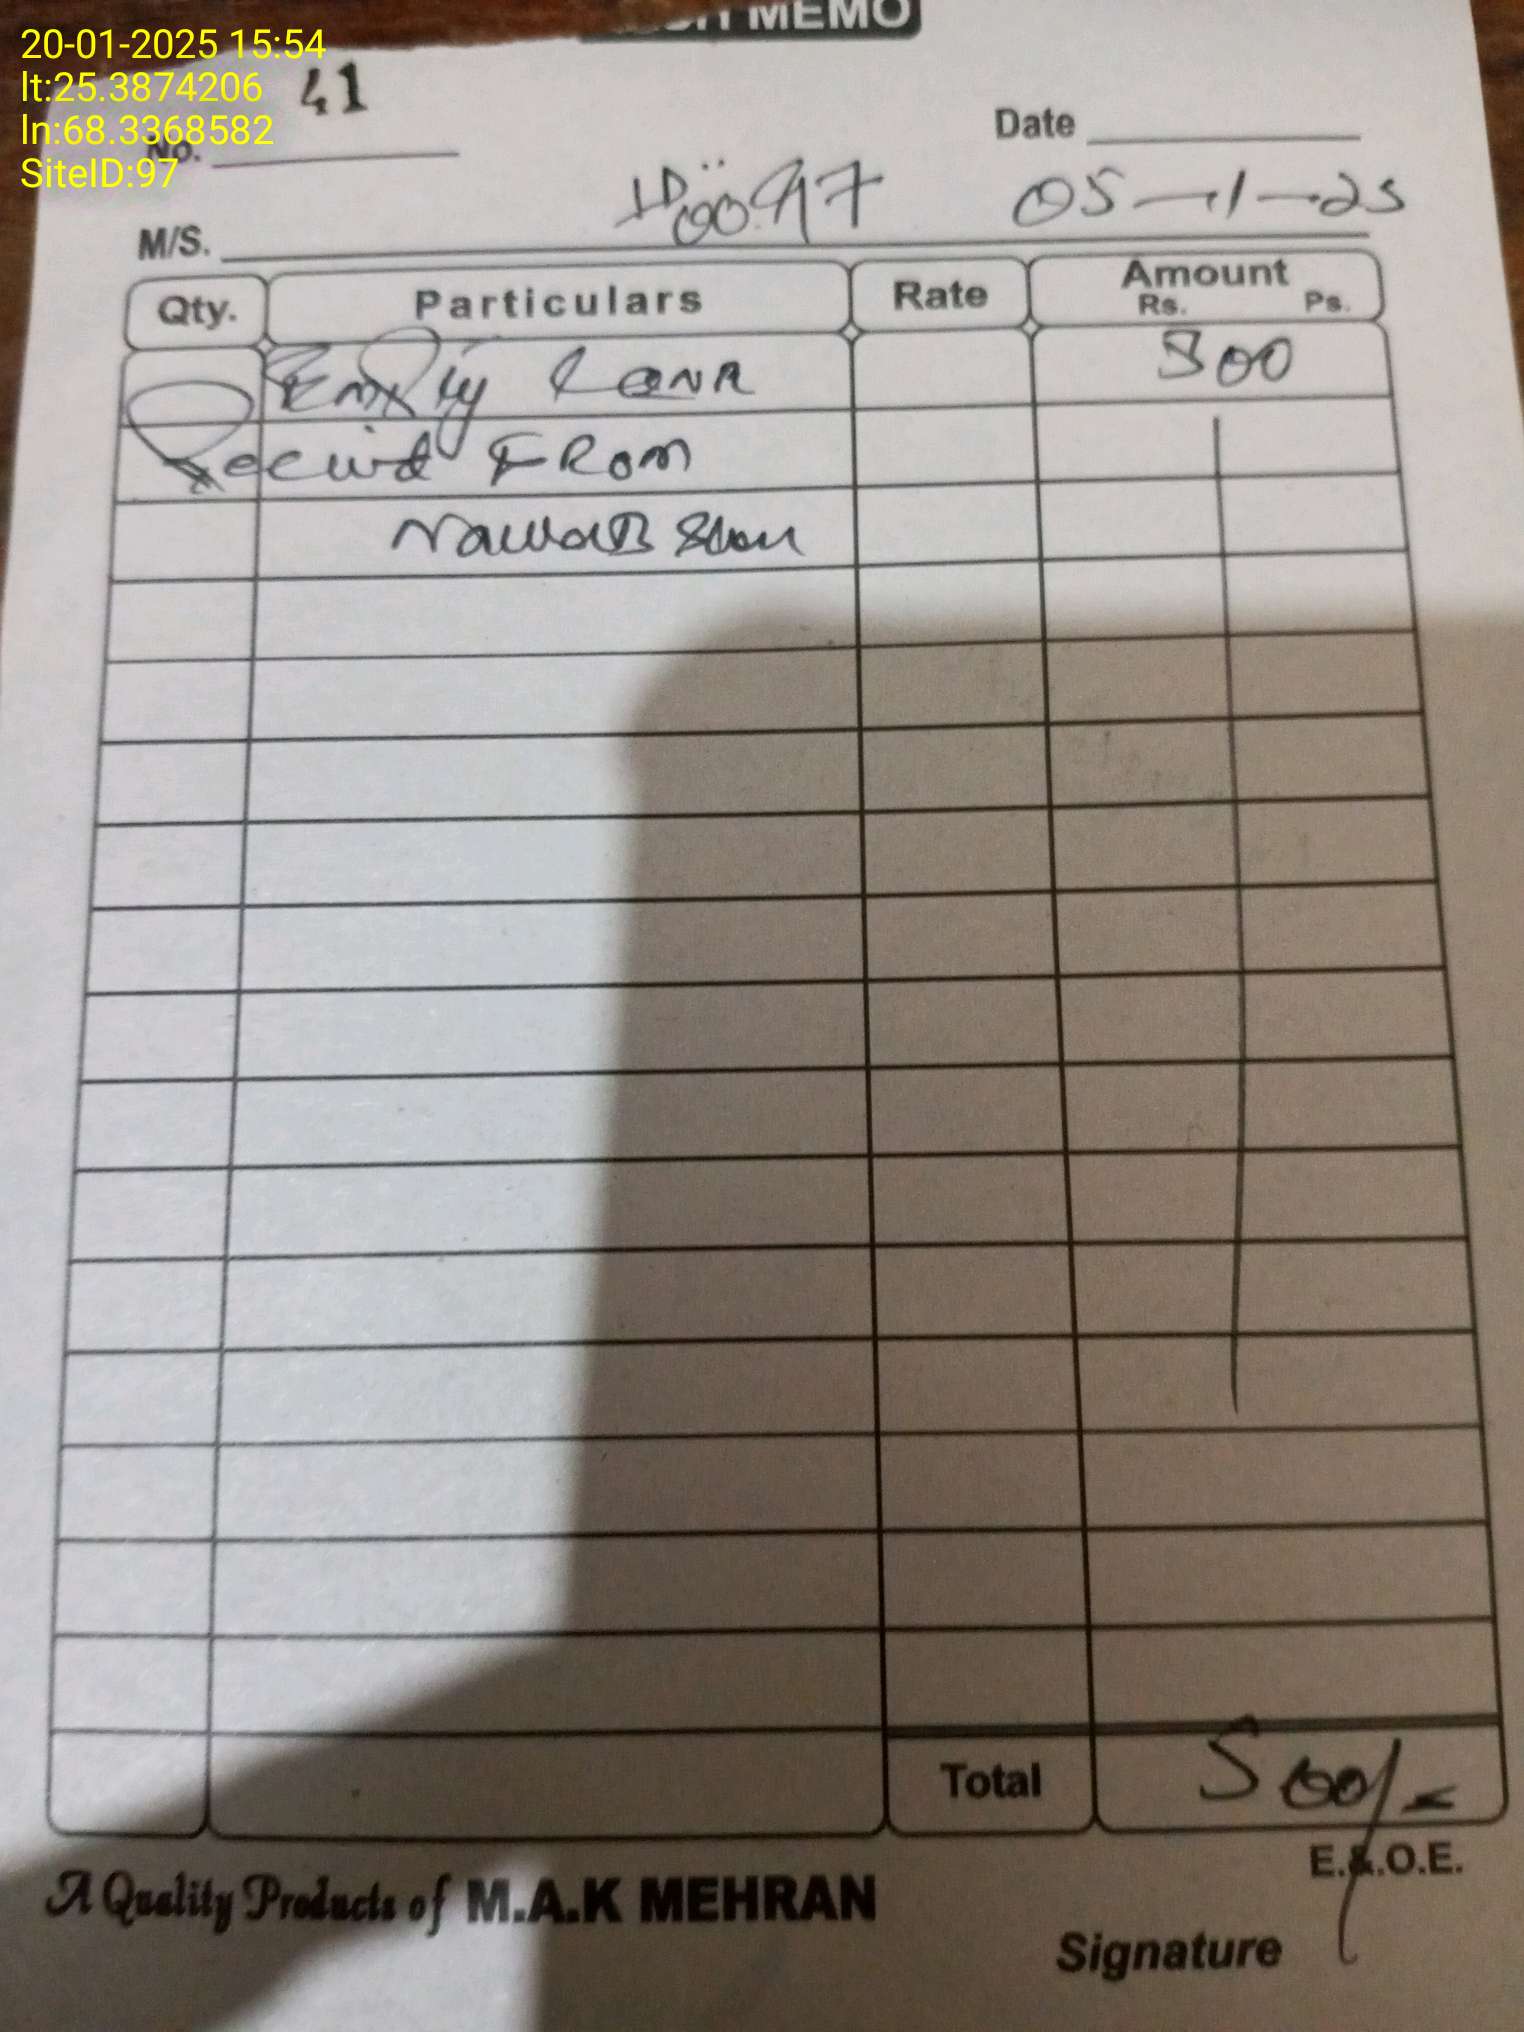 20-01-2025 15:54
lt:25.3874206
ln:68.3368582
SiteID:97
MEMO
41
No.
Date
ID0097
05-1-25
M/S.
Qty. Particulars Rate Amount
Rs. Ps.
Empty 500
FROM
Total 500/=
E.&.O.E.
A Quality Products of M.A.K MEHRAN
Signature